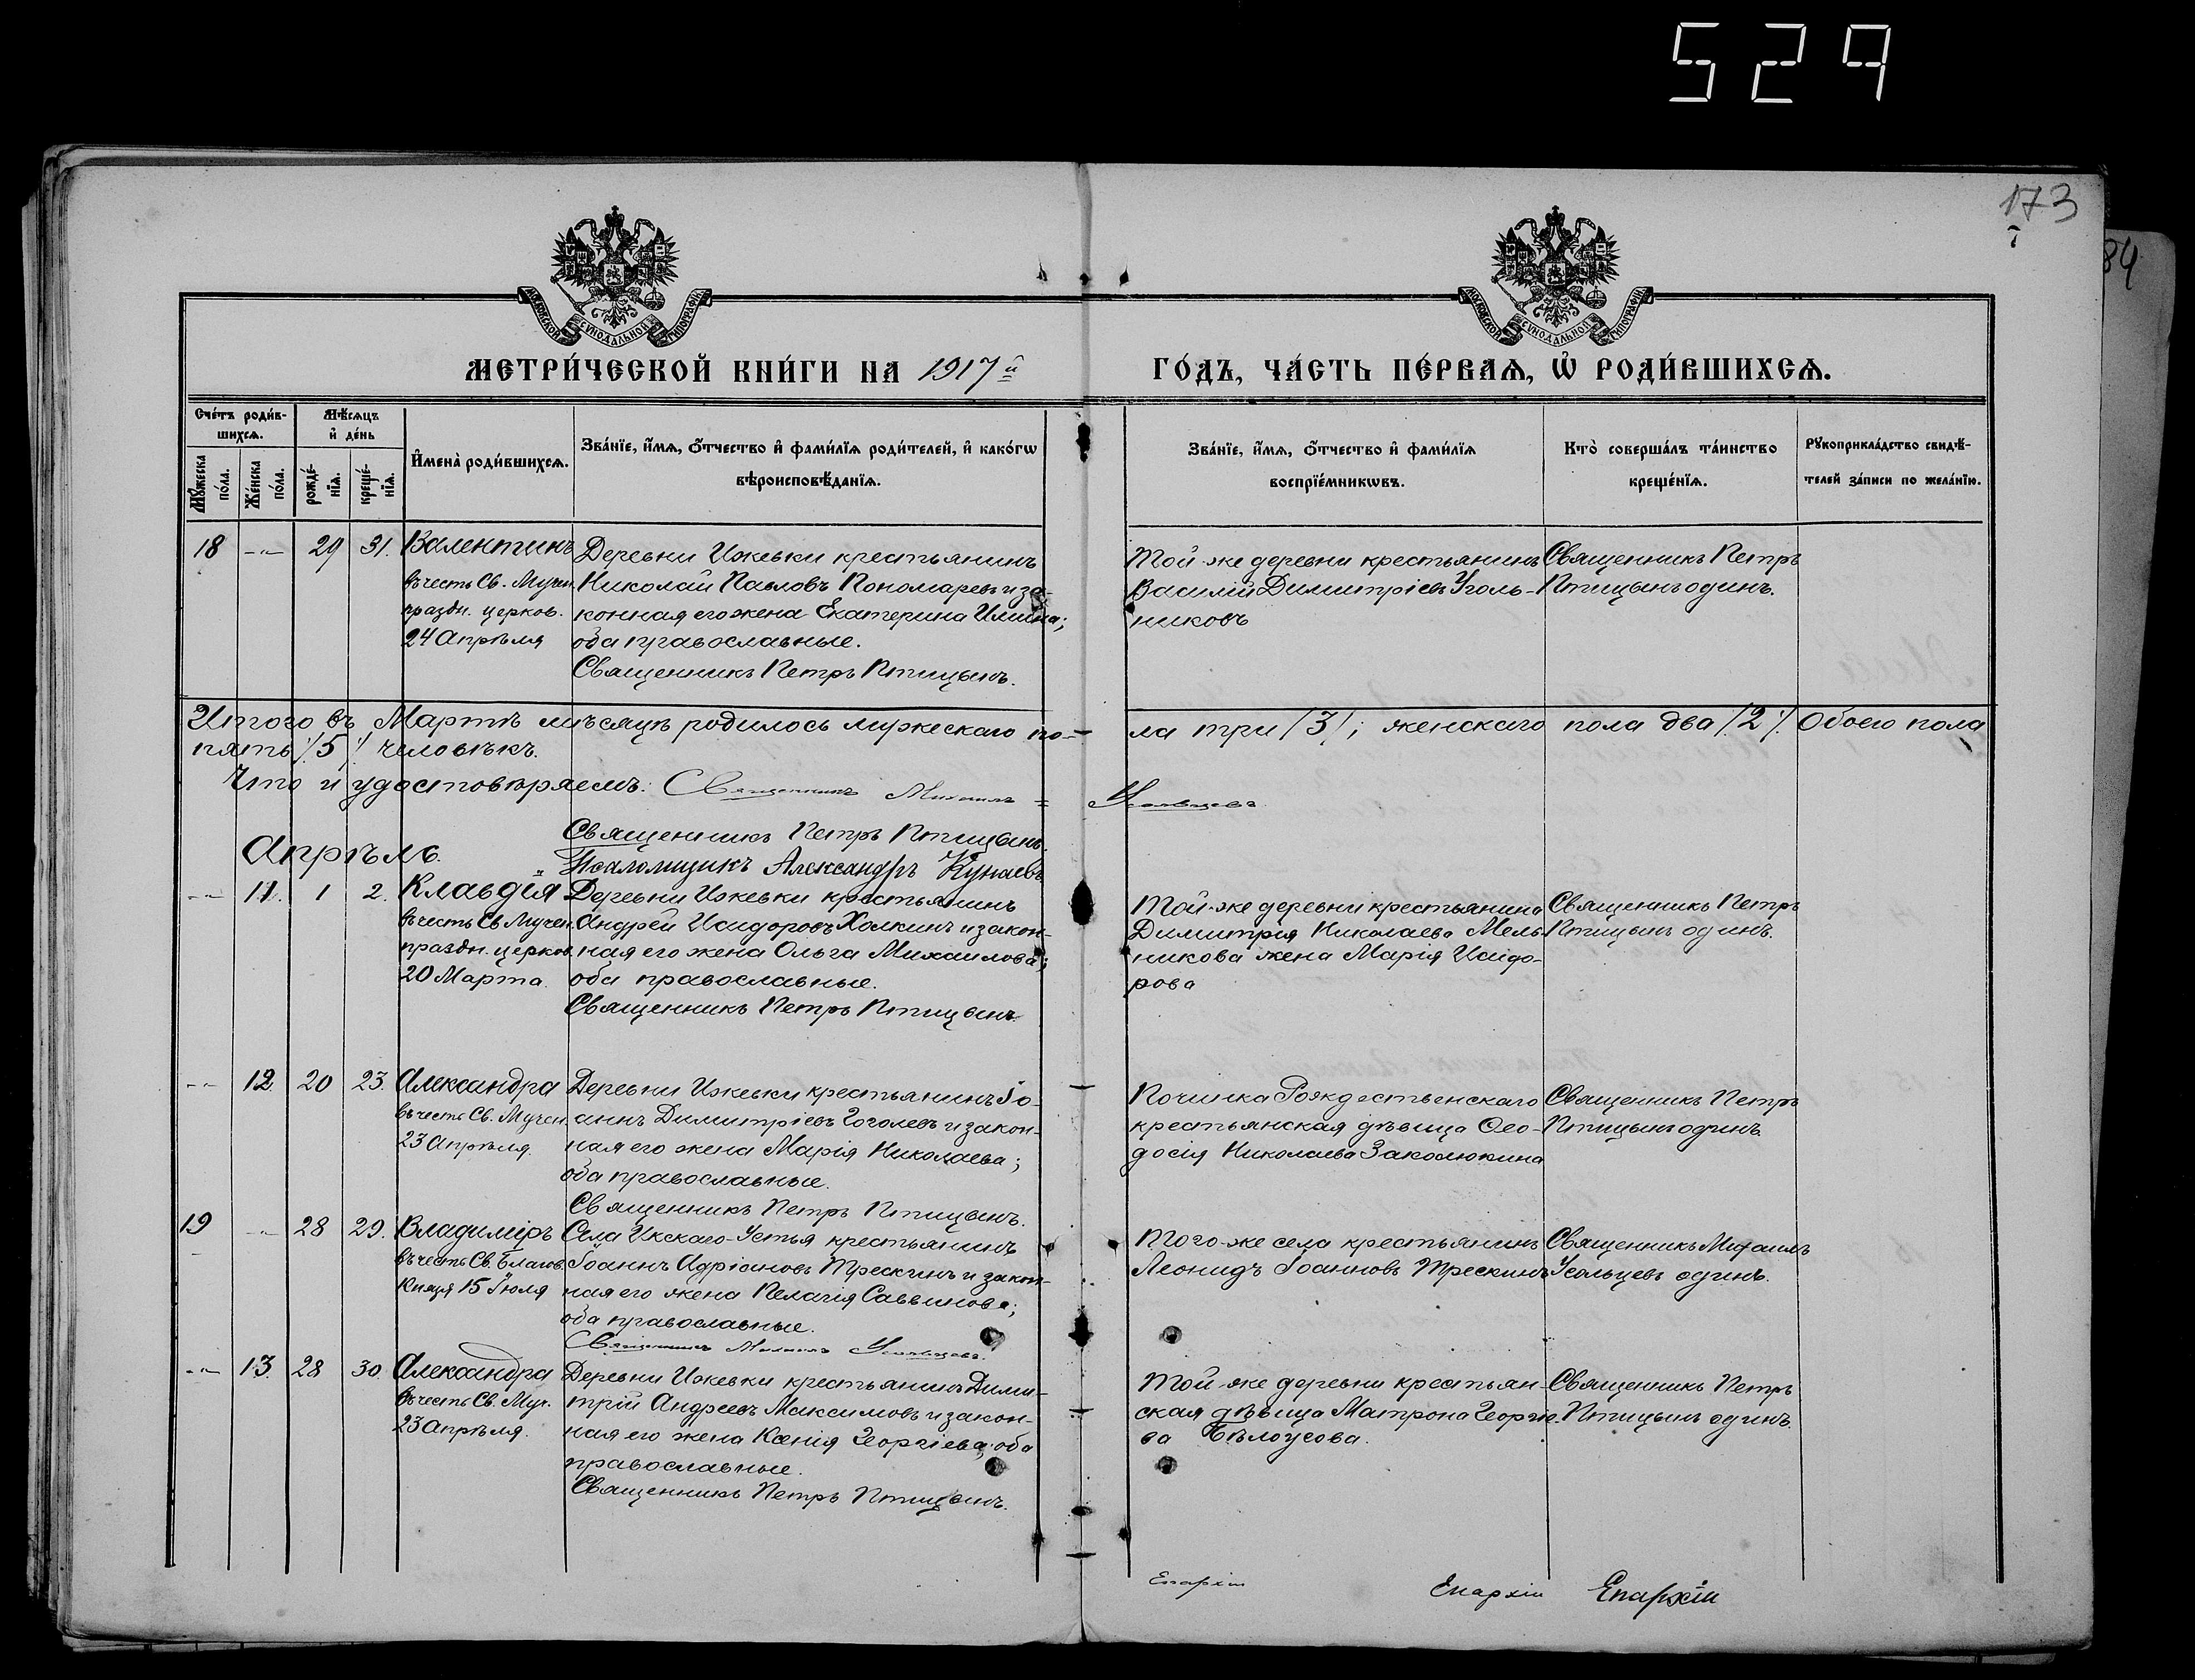 529
173
84
МОСКОВСКОЙ СѴНОДАЛЬНОЙ ТИПОГРАФІИ
МОСКОВСКОЙ СѴНОДАЛЬНОЙ ТИПОГРАФІИ
МЕТРИ́ЧЕСКОЙ КНИ́ГИ НА 1917й
ГО́ДЪ, ЧА́СТЬ ПЕ́РВАѦ, Ѡ҆ РОДИ́ВШИХСѦ.
Сче́тъ роди́в-
шихсѧ.
Мѣ́сѧцъ
и҆ де́нь
Мꙋ́жеска по́ла.
Же́нска по́ла.
рожде́-
нїѧ.
креще́-
нїѧ.
И҆мена̀ роди́вшихсѧ.
Зва́нїе, и҆́мѧ, ѻ҆́тчество и҆ фами́лїѧ роди́телей, и҆ како́гѡ
вѣроисповѣ́данїѧ.
Зва́нїе, и҆́мѧ, ѻ҆́тчество и҆ фами́лїѧ
воспрїе́мникѡвъ.
Кто̀ соверша́лъ та́инство
креще́нїѧ.
Рꙋкоприкла́дство свидѣ́-
телей за́писи по жела́нїю.
18 -"- 29 31. Валентинъ
въ честь Св. Мучен.
праздн. церков.
24 Апрѣля
Деревни Ижевки крестьянинъ
Николай Павловъ Пономаревъ и за-
конная его жена Екатерина Ильина;
оба православные.
Священникъ Петръ Птицынъ.
Той-же деревни крестьянинъ
Василій Димитріевъ Уголь-
никовъ
Священникъ Петръ
Птицынъ одинъ.
Итого въ Мартѣ мѣсяцѣ родилось мужескаго по-
ла три /3/; женскаго пола два /2/. Обоего пола
пять /5/ человѣкъ.
Что и удостовѣряемъ: Священникъ Михаилъ =
Усольцевъ.
Священникъ Петръ Птицынъ.
Псаломщикъ Александръ Кунаевъ
Апрѣль.
-"- 11. 1 2. Клавдія
въ честь Св. Мучен.
праздн. церков.
20 Марта.
Деревни Ижевки крестьянинъ
Андрей Исидоровъ Холкинъ и закон-
ная его жена Ольга Михаилова;
оба православные.
Священникъ Петръ Птицынъ.
Той-же деревни крестьянина
Димитрія Николаева Мель-
никова жена Марія Исидо-
рова
Священникъ Петръ
Птицынъ одинъ.
-"- 12 20 23. Александра
въ честь Св. Мучен.
23 Апрѣля.
Деревни Ижевки крестьянинъ Іо-
аннъ Димитріевъ Гоголевъ и закон-
ная его жена Марія Николаева;
оба православные.
Священникъ Петръ Птицынъ.
Починка Рождественскаго
крестьянская дѣвица Ѳео-
досія Николаева Заколюкина
Священникъ Петръ
Птицынъ одинъ.
19 -"- 28 29. Владиміръ
въ честь Св. Благов.
Князя 15 Іюля
Села Икскаго-Устья крестьянинъ
Іоаннъ Адріановъ Трескинъ и закон-
ная его жена Пелагія Саввинова;
оба православные.
Священникъ Михаилъ Усольцевъ.
Того-же села крестьянинъ
Леонидъ Іоанновъ Трескинъ
Священникъ Михаилъ
Усольцевъ одинъ.
-"- 13. 28 30. Александра
въ честь Св. Муч.
23 Апрѣля.
Деревни Ижевки крестьянинъ Дими-
трій Андреевъ Максимовъ и закон-
ная его жена Ксенія Георгіева; оба
православные.
Священникъ Петръ Птицынъ.
Той-же деревни крестьян-
ская дѣвица Матрона Георгіе-
ва Бѣлоусова.
Священникъ Петръ
Птицынъ одинъ.
Епархіи Епархіи Епархіи